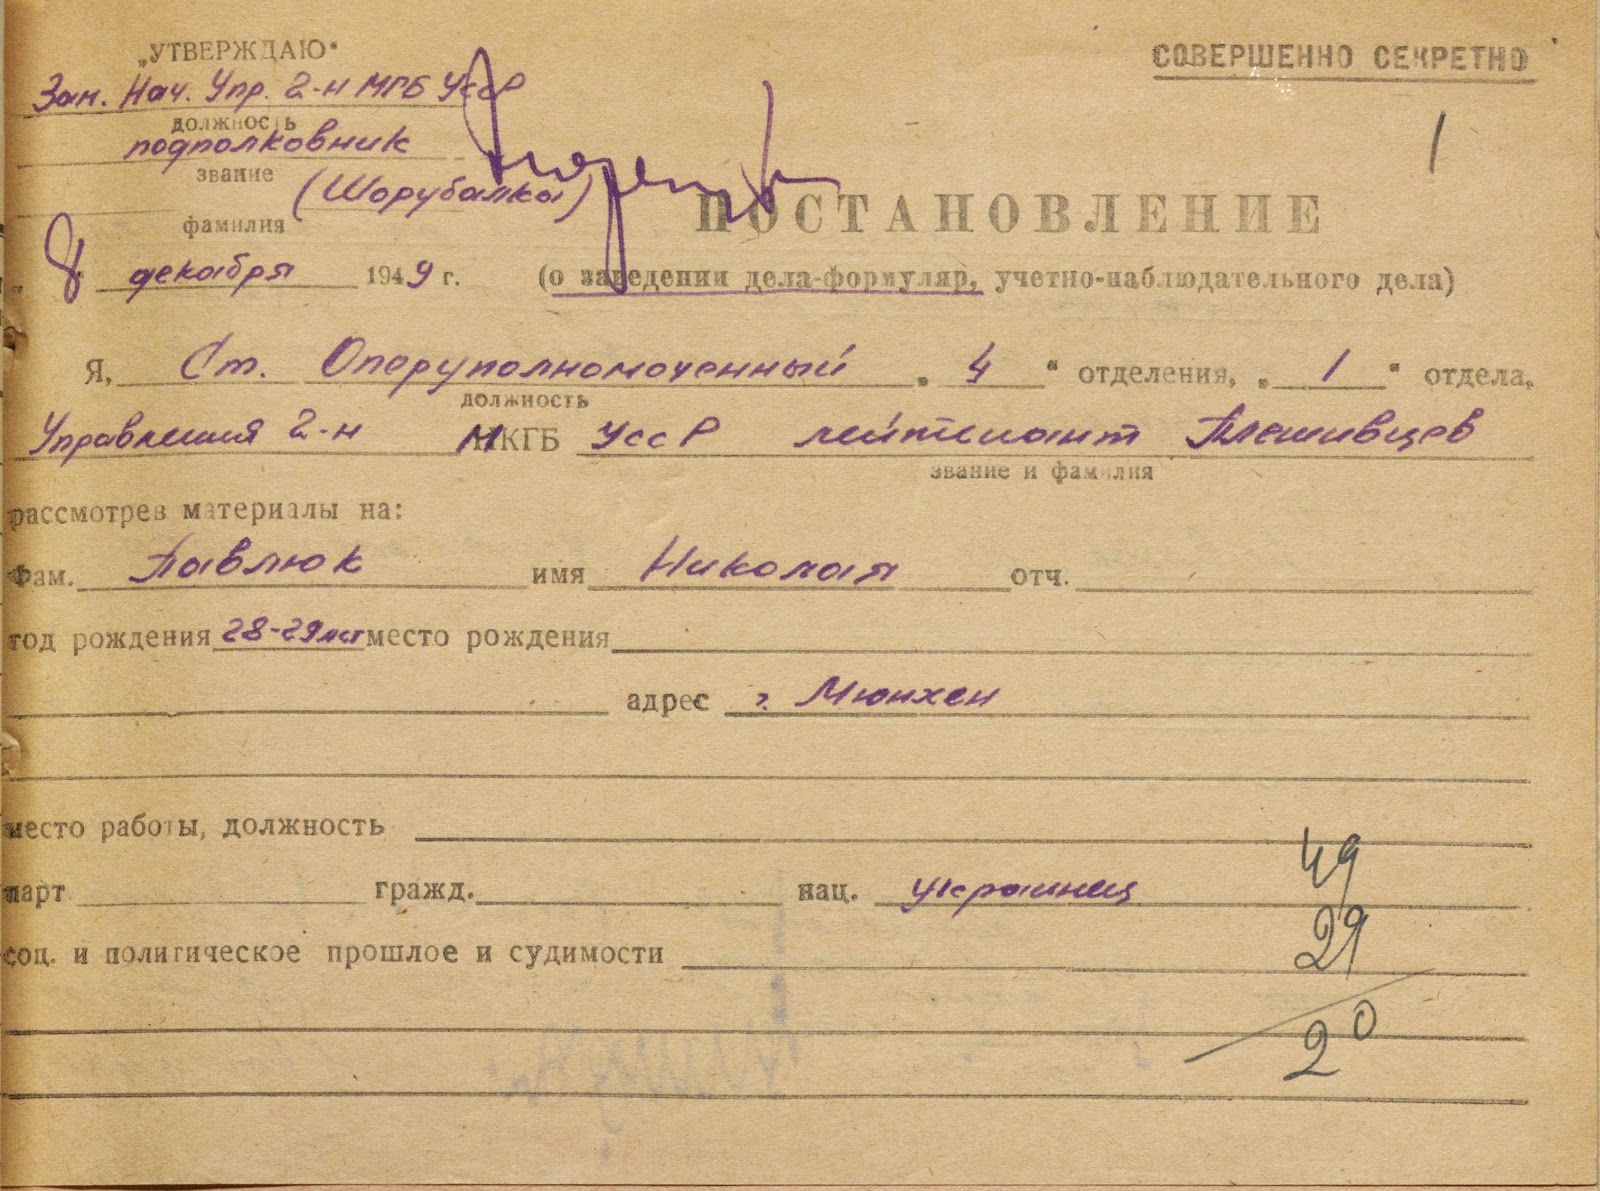 „УТВЕРЖДАЮ"
СОВЕРШЕННО СЕКРЕТНО
Зам. Нач. Упр. 2-н МГБ УССР
должность
1
подполковник
звание
(Шорубалка)
фамилия
ПОСТАНОВЛЕНИЕ
8 декабря 1949 г.
(о заведении дела-формуляр, учетно-наблюдательного дела)
Я, Ст. Оперуполномоченный „4" отделения, „1" отдела,
должность
Управления 2-н МКГБ УССР лейтенант Плешивцев
звание и фамилия
рассмотрев материалы на:
Фам. Павлюк имя Николая отч.
год рождения 28-29 лет место рождения
адрес г. Мюнхен
место работы, должность
49
парт гражд. нац. украинец
29
соц. и политическое прошлое и судимости
20